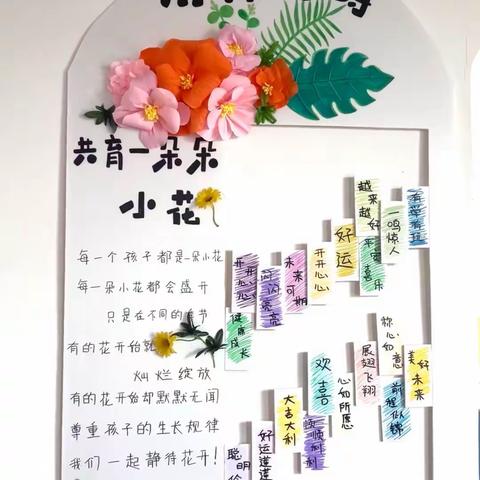 共育一朵朵
小花
每一个孩子都是一朵小花
每一朵小花都会盛开
只是在不同的季节
有的花开始就
灿烂绽放
有的花开始却默默无闻
尊重孩子的生长规律
我们一起静待花开！
开开心心
闪闪亮亮
未来可期
开开心心
好运
越来越好
平安喜乐
一鸣惊人
健康成长
欢喜
心如所愿
展翅飞翔
称心如意
前程似锦
美好未来
大吉大利
顺顺利利
好运莲莲
聪明伶